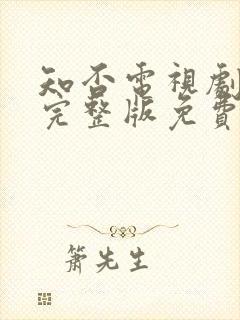 知否電視劇
完整版免費
簫先生